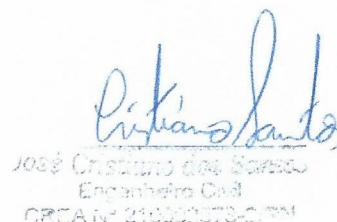 Cristiano Santos
José Cristiano dos Santos
Engenheiro Civil
CREA Nº